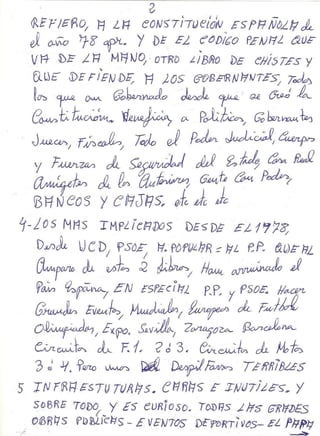 2
REFIERO, A LA CONSTITUCIÓN ESPAÑOLA de
el año 78 apr. Y DE EL CODIGO PENAL QUE
VA DE LA MANO, OTRO LIBRO DE CHISTES Y
QUE DEFIENDE, A LOS GOBERNANTES, Todos
los que an Gobernado desde que se Creó la
Constitución. Beneficia, a Politicos, Gobernantes
Jueces, Fiscales, Todo el Poder Judicial, Cuerpos
y Fuerzas de Seguridad del Estado, Casa Real
Amigetes de los Anteriores, Gente Con Poder,
BANCOS Y CAJAS. etc etc etc
4-LOS MAS IMPLICADOS DESDE EL 1978,
Desde UCD, PSOE, A. POPULAR = AL P.P. QUE AL
Amparo de estos 2 Libros, Han arruinado el
Pais España, EN ESPECIAL P.P. y PSOE. Hacer
Grandes Eventos, Mundiales, Europeos de Futbol
Olimpiadas, Expo. Sevilla, Zaragoza Barcelona
Circuitos de F.1. 2ó3. Circuitos de Motos
3 ó 4, Pero unos Despilfarros TERRIBLES
5 INFRAESTUTURAS. CARAS E INUTILES. Y
SOBRE TODO, Y ES CURIOSO. TODAS LAS GRADES
OBRAS PUBLICAS - EVENTOS DEPORTIVOS - EL PAPA